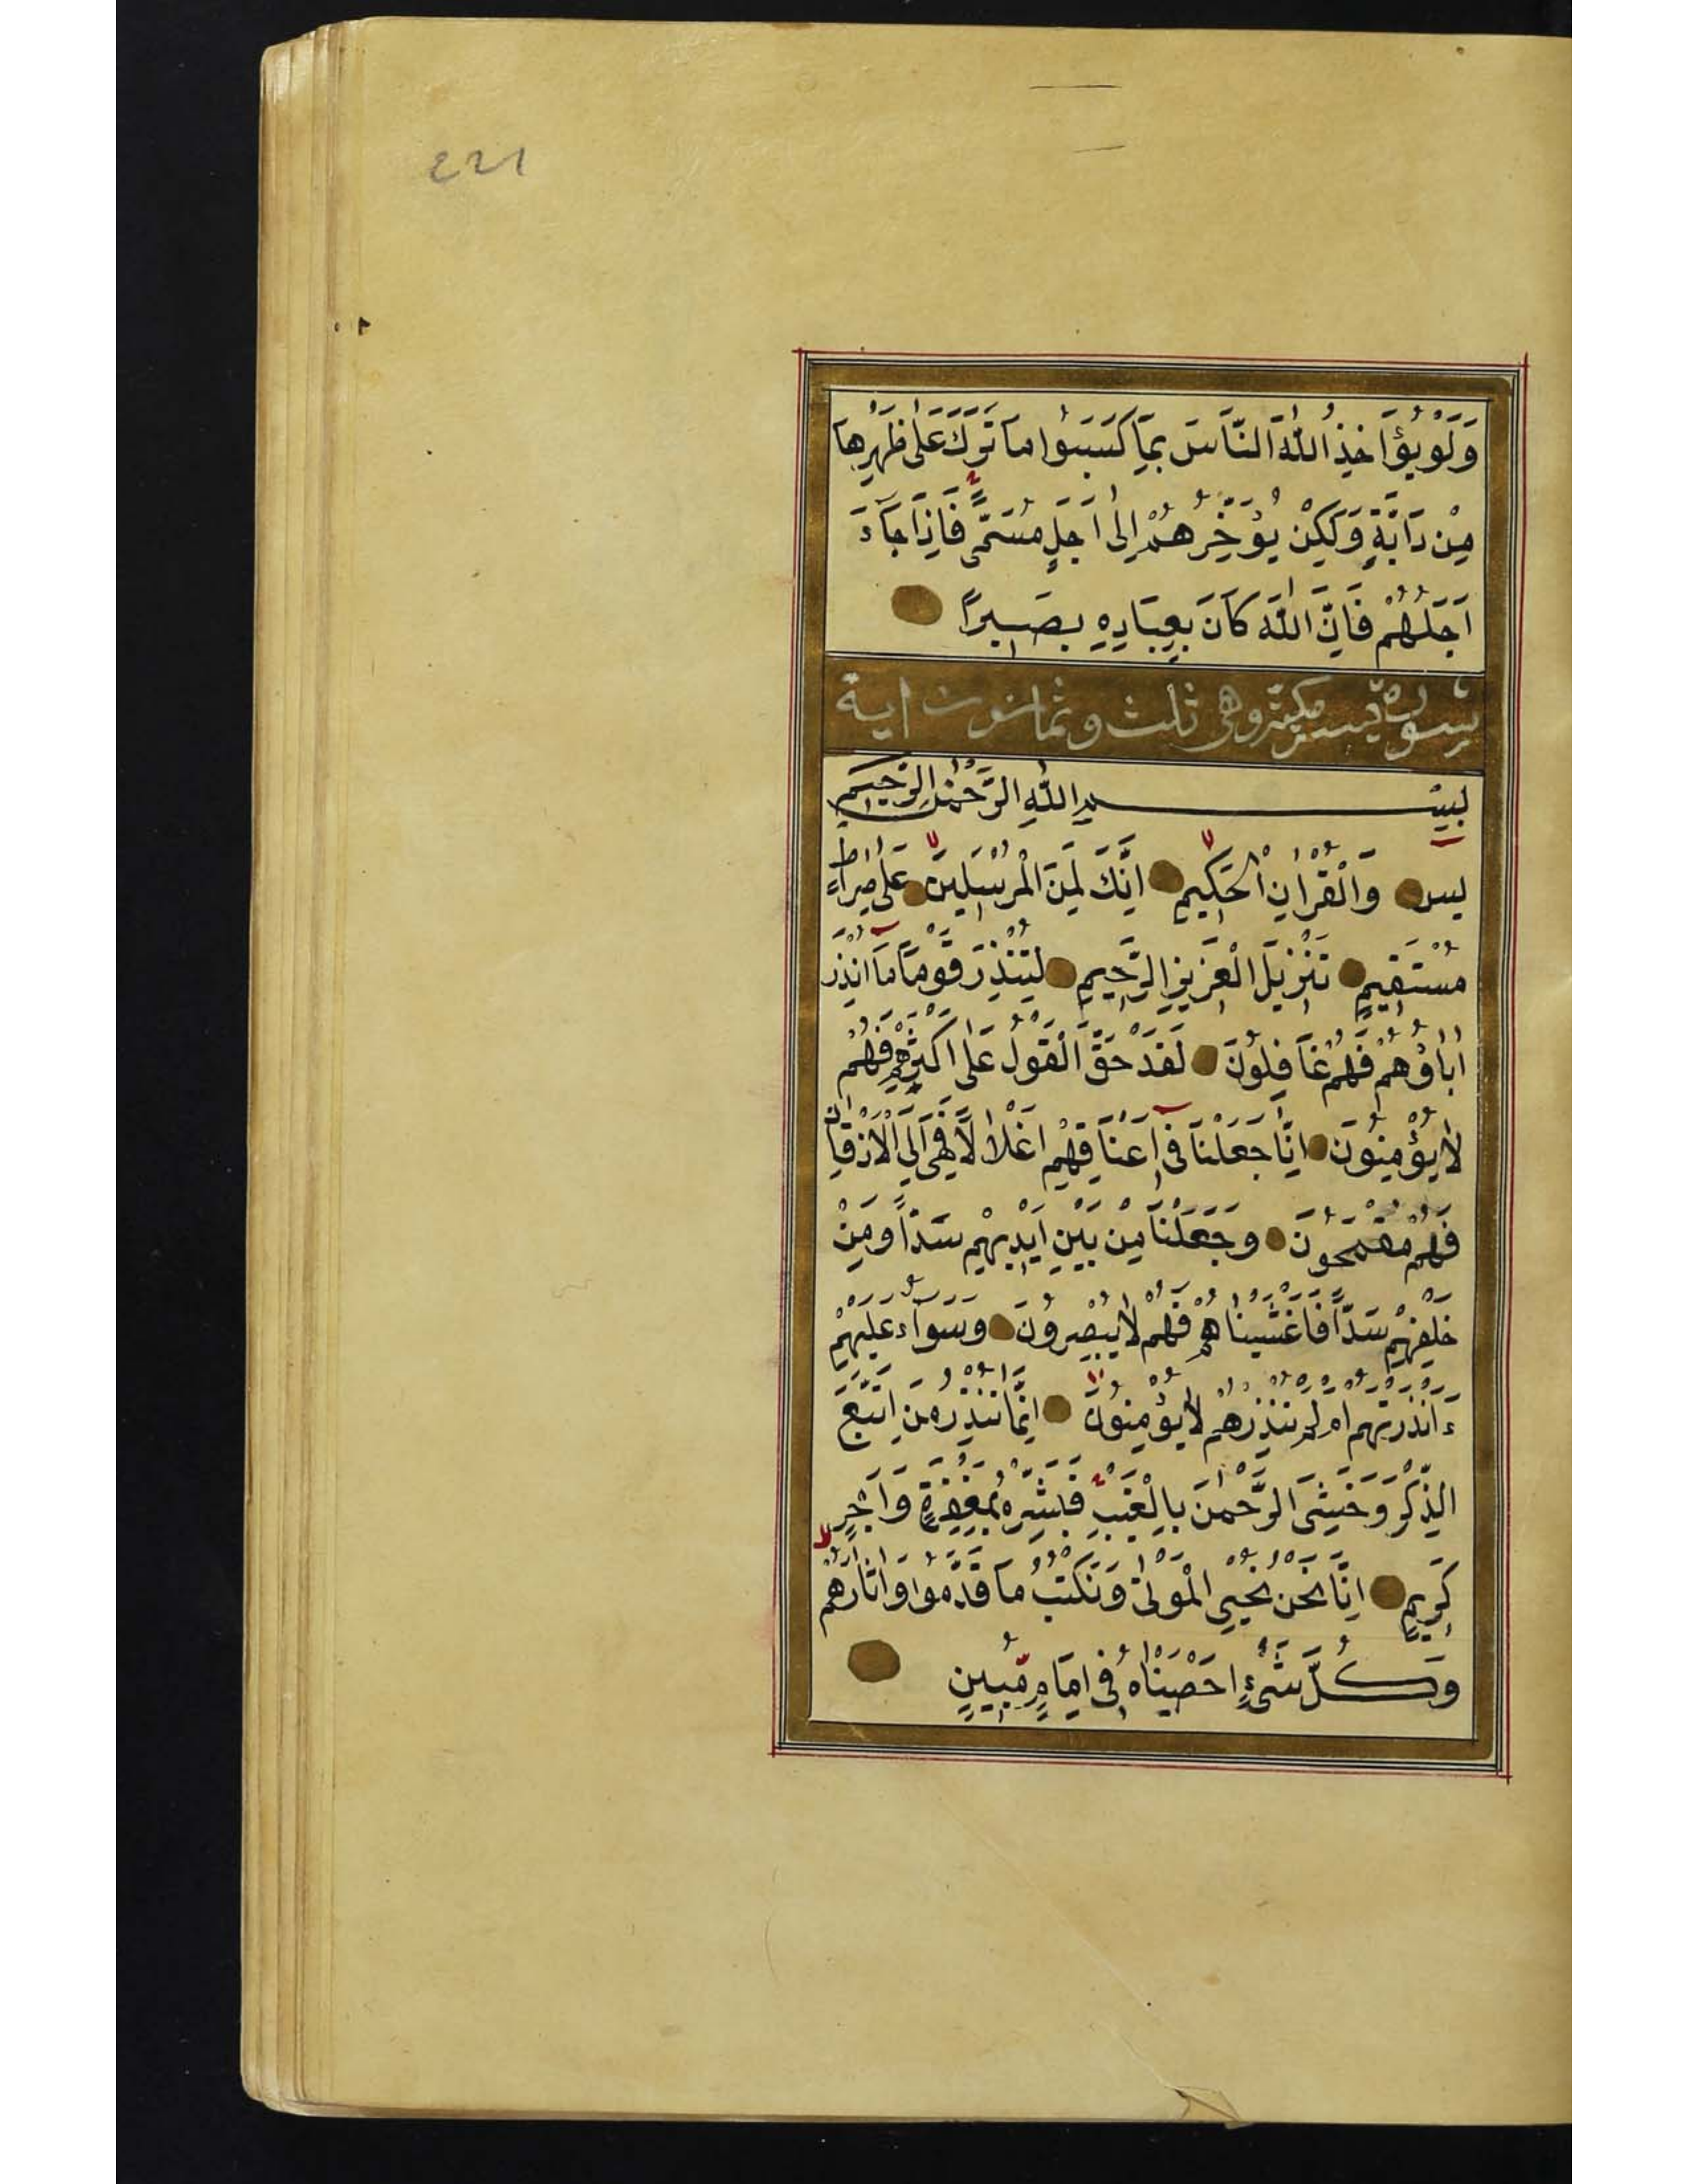 221
وَلَوْ يُؤَاخِذُ اللّٰهُ النَّاسَ بِمَا كَسَبُوا مَا تَرَكَ عَلٰى ظَهْرِهَا
مِنْ دَابَّةٍ وَلٰكِنْ يُؤَخِّرُهُمْ اِلٰى اَجَلٍ مُسَمًّى فَاِذَا جَاۤءَ
اَجَلُهُمْ فَاِنَّ اللّٰهَ كَانَ بِعِبَادِهِ بَصِيرًا
سورة يس مكية وهى ثلث وثمانون اية
بِسْمِ اللّٰهِ الرَّحْمٰنِ الرَّحِيمِ
يس وَالْقُرْاٰنِ الْحَكِيمِ اِنَّكَ لَمِنَ الْمُرْسَلِينَ عَلٰى صِرَاطٍ
مُسْتَقِيمٍ تَنْزِيلَ الْعَزِيزِ الرَّحِيمِ لِتُنْذِرَ قَوْمًا مَاۤ اُنْذِرَ
اٰبَاؤُهُمْ فَهُمْ غَافِلُونَ لَقَدْ حَقَّ الْقَوْلُ عَلٰى اَكْثَرِهِمْ فَهُمْ
لَا يُؤْمِنُونَ اِنَّا جَعَلْنَا فِىۤ اَعْنَاقِهِمْ اَغْلَالًا فَهِىَ اِلَى الْاَذْقَانِ
فَهُمْ مُقْمَحُونَ وَجَعَلْنَا مِنْ بَيْنِ اَيْدِيهِمْ سَدًّا وَمِنْ
خَلْفِهِمْ سَدًّا فَاَغْشَيْنَاهُمْ فَهُمْ لَا يُبْصِرُونَ وَسَوَاۤءٌ عَلَيْهِمْ
ءَاَنْذَرْتَهُمْ اَمْ لَمْ تُنْذِرْهُمْ لَا يُؤْمِنُونَ اِنَّمَا تُنْذِرُ مَنِ اتَّبَعَ
الذِّكْرَ وَخَشِىَ الرَّحْمٰنَ بِالْغَيْبِ فَبَشِّرْهُ بِمَغْفِرَةٍ وَاَجْرٍ
كَرِيمٍ اِنَّا نَحْنُ نُحْيِى الْمَوْتٰى وَنَكْتُبُ مَا قَدَّمُوا وَاٰثَارَهُمْ
وَكُلَّ شَىْءٍ اَحْصَيْنَاهُ فِىۤ اِمَامٍ مُبِينٍ